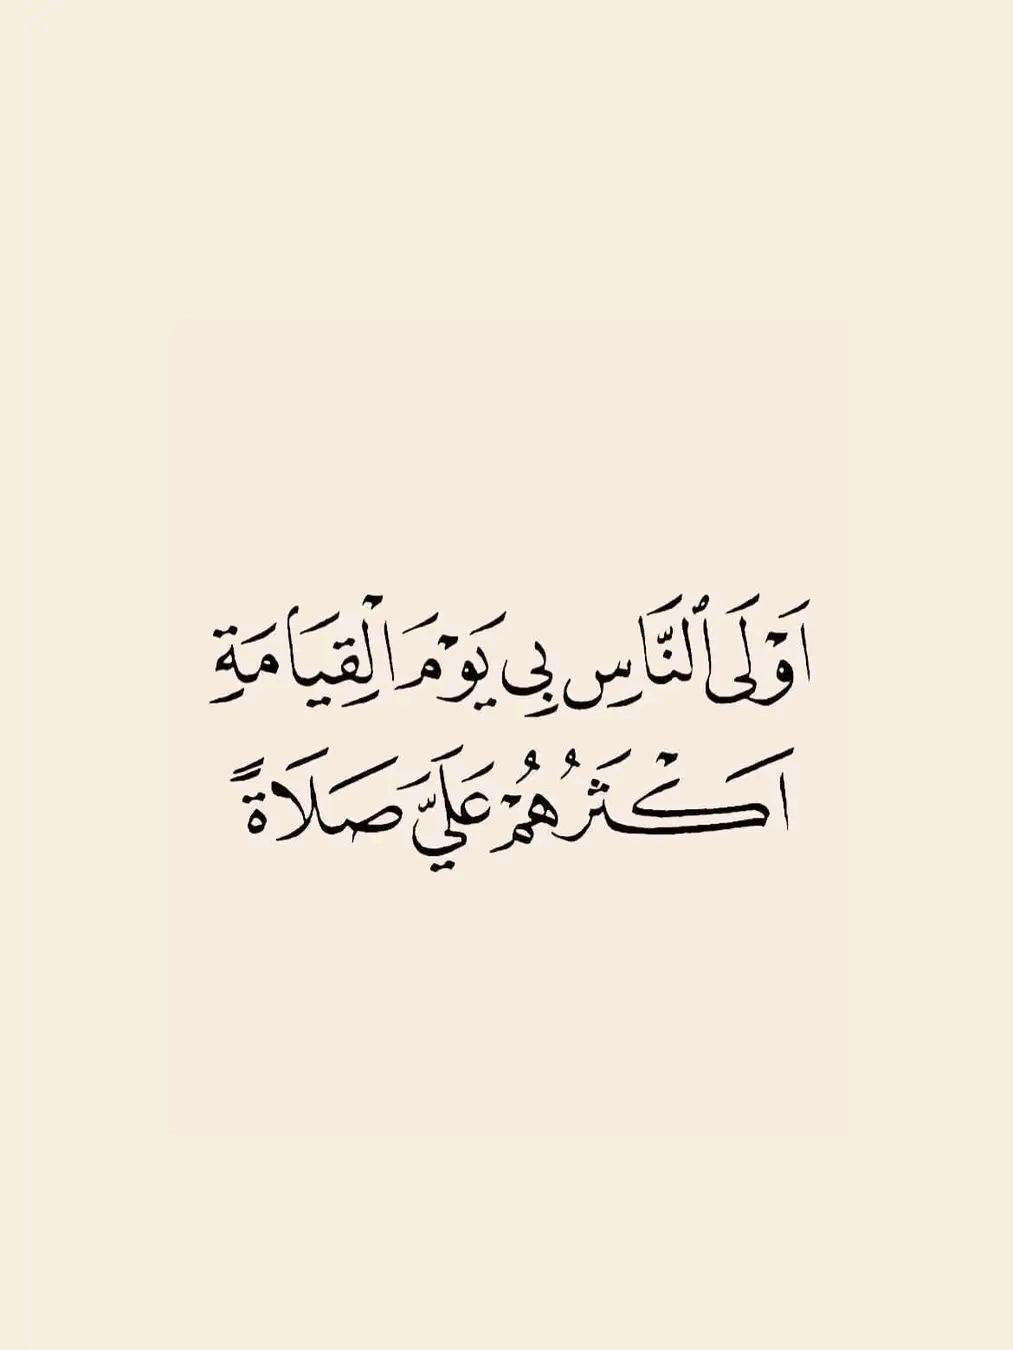 اَوْلَى ٱلنَّاسِ بِي يَوْمَ الْقِيَامَةِ
اَكْثَرُهُمْ عَلَيَّ صَلَاةً